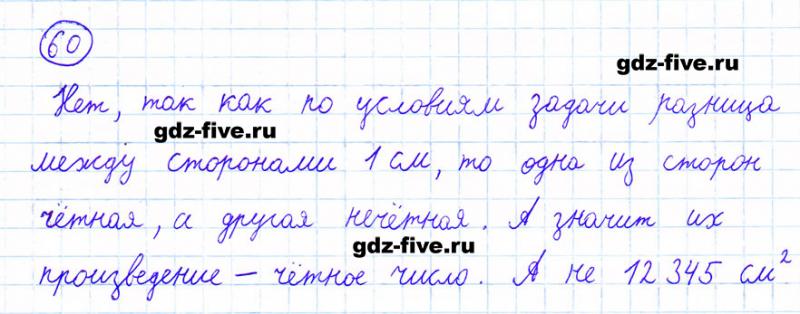 60
gdz-five.ru
Нет, так как по условиям задачи разница
gdz-five.ru
между сторонами 1 см, то одна из сторон
чётная, а другая нечётная. А значит их
gdz-five.ru
произведение – чётное число. А не 12 345 см²